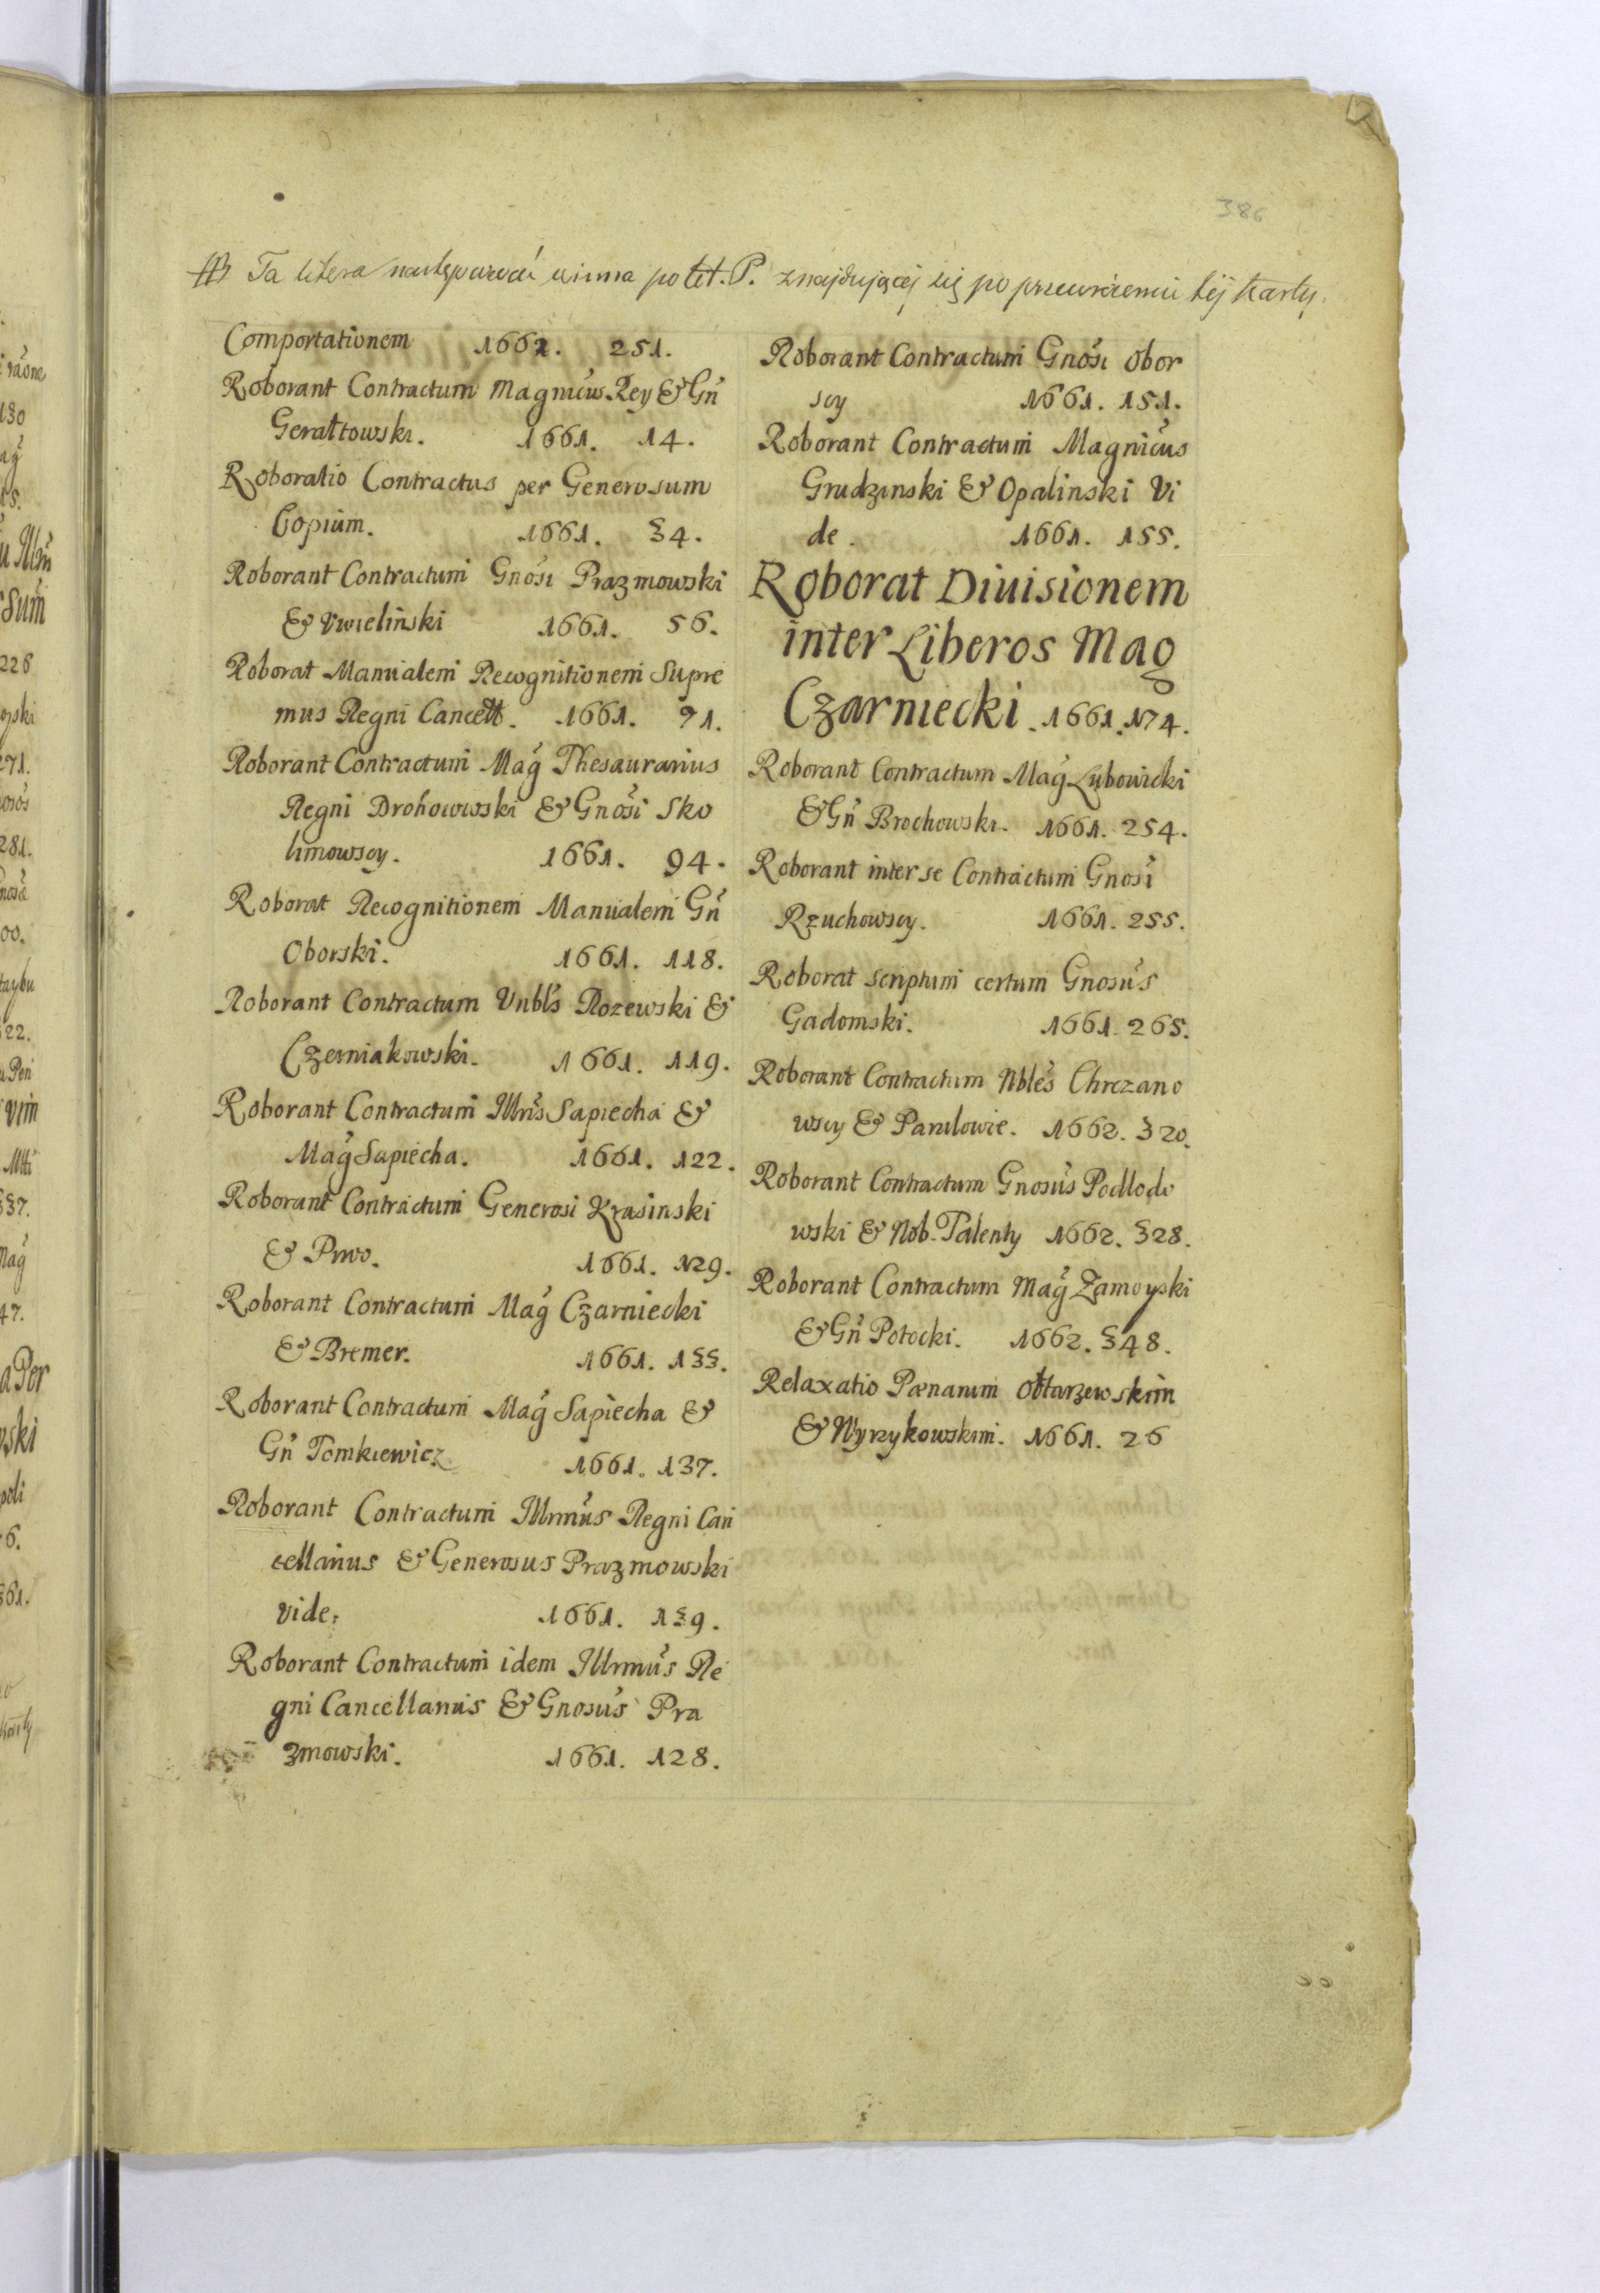 386
Ta litera następować winna po lit. P. znajdującej się po przewróceniu tej karty.
Comportationem 1661. 251.
Roborant Contractum Magnicus Rey & Gn̄
Gerałtowski. 1661. 14.
Roboratio Contractus per Generosum
Copium. 1661. 34.
Roborant Contractum Gnosi Prazmowski
& Uwielinski 1661. 56.
Roborat Manualem Recognitionem Supre
mus Regni Cancell. 1661. 71.
Roborant Contractum Mag Thesaurarius
Regni Drohowski & Gnosi Sko
limowscy. 1661. 94.
Roborat Recognitionem Manualem Gn̄
Oborski. 1661. 118.
Roborant Contractum Vnbls Rozewski &
Czerniakowski. 1661. 119.
Roborant Contractum Illris Sapiecha &
Mag Sapiecha. 1661. 122.
Roborant Contractum Generosi Krasinski
& 1661. 129.
Roborant Contractum Mag Czarniecki
& Bremer. 1661. 133.
Roborant Contractum Mag Sapiecha &
Gn̄ Tomkiewicz 1661. 137.
Roborant Contractum Illrmus Regni Can
cellarius & Generosus Prazmowski
vide. 1661. 139.
Roborant Contractum idem Illrmus Re
gni Cancellarius & Gnosus Pra
zmowski. 1661. 128.
Roborant Contractum Gnosi Obor
scy 1661. 151.
Roborant Contractum Magnicus
Grudzinski & Opalinski Vi
de. 1661. 155.
Roborat Diuisionem
inter Liberos Mag
Czarniecki. 1661. 174.
Roborant Contractum Mag Lubowicki
& Gn̄ Brochowski. 1661. 254.
Roborant inter se Contractum Gnosi
Rzuchowscy. 1661. 255.
Roborat scriptum certum Gnosus
Gadomski. 1661. 265.
Roborant Contractum Nbles Chrczano
wscy & Pawlowie. 1662. 320.
Roborant Contractum Gnosus Podlodo
wski & Nob. Talenty 1662. 328.
Roborant Contractum Mag Zamoyski
& Gn̄ Potocki. 1662. 348.
Relaxatio Pænarum Ołtarzewskim
& Wyrzykowskim. 1661. 26